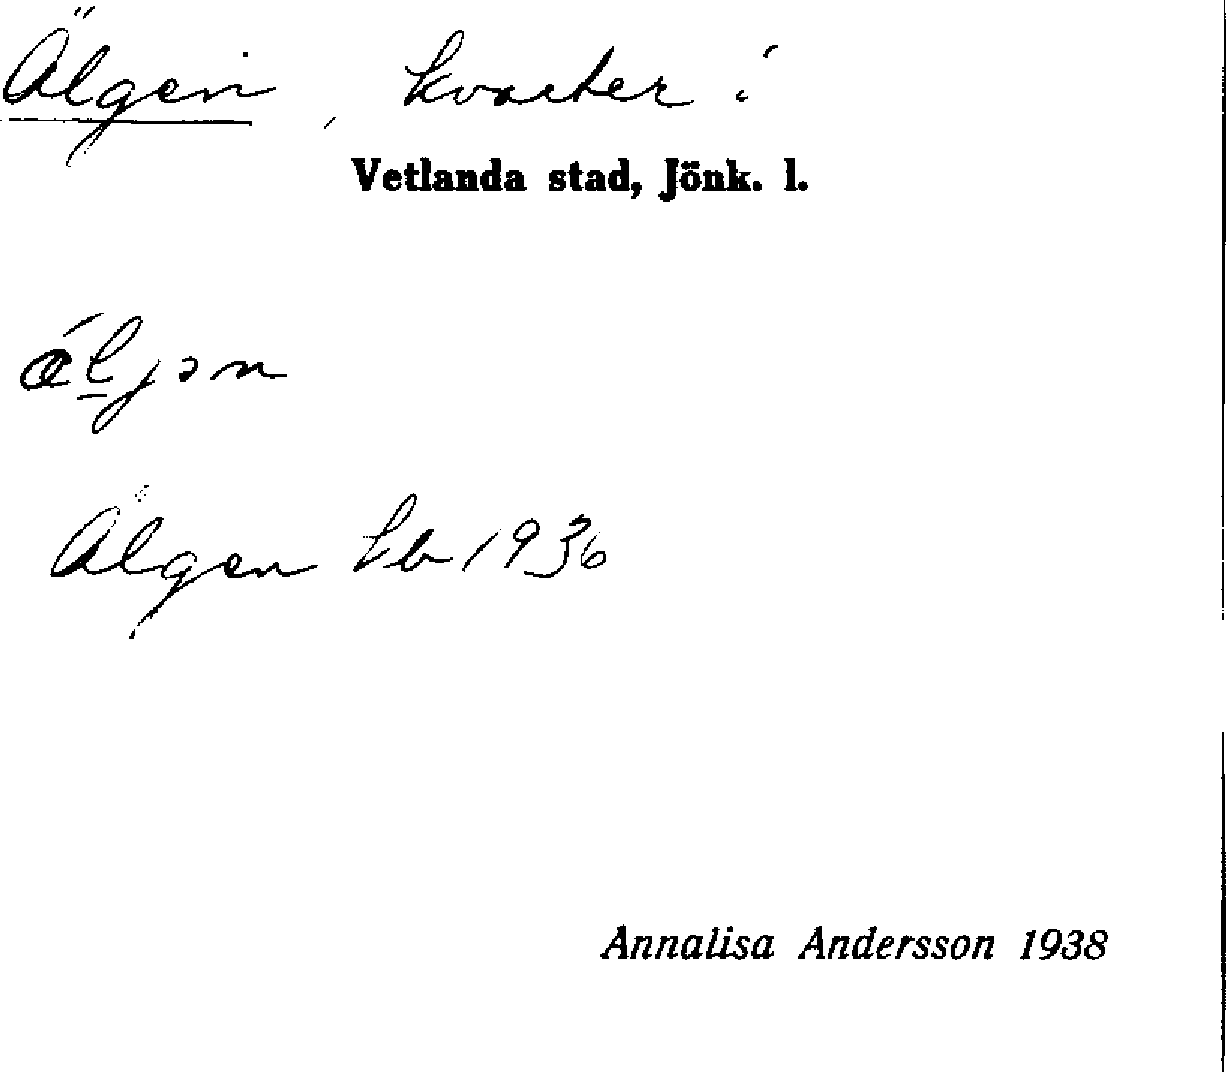 Älgen, kvarter i
Vetlanda stad, Jönk. l.
ǽl̲jən
Älgen Lb 1936
Annalisa Andersson 1938